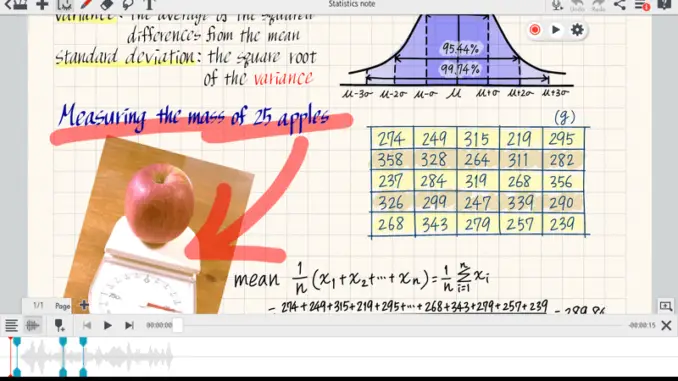 Statistics note
variance: The average of the squared
differences from the mean
Standard deviation: the square root
of the variance
95.44%
99.74%
μ-3σ μ-2σ μ-σ μ μ+σ μ+2σ μ+3σ
Measuring the mass of 25 apples
(g)
274 249 315 219 295
358 328 264 311 282
237 284 319 268 356
326 299 247 339 290
268 343 279 257 239
mean 1/n (x₁+x₂+⋯+xₙ) = 1/n ∑ⁿᵢ₌₁ xᵢ
= 274+249+315+219+295+⋯+268+343+279+257+239
1/1 Page
00:00:00
-00:00:15